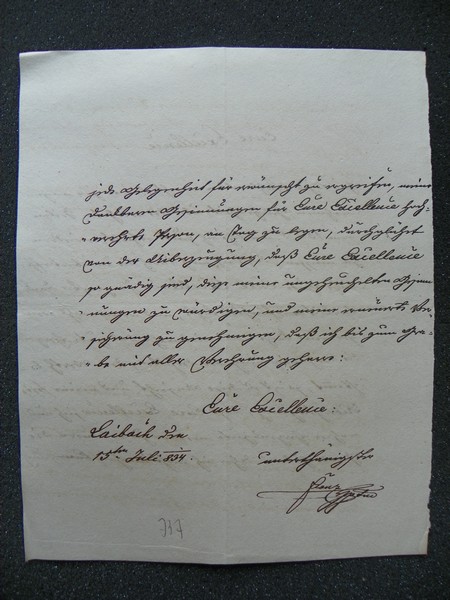 jede Gelegenheit für erwünscht zu ergreifen, meine
dankbaren Gesinnungen für Eure Excellence hoch-
verehrte Person, an Tag zu legen, durchglüht
von der Überzeugung, daß Eure Excellence
so gnädig sind, diese meine ungeheuchelten Gesin-
nungen zu würdigen, und meine erneuerte Ver-
sicherung zu genehmigen, daß ich bis zum Gra-
be mit aller Verehrung geharre:
Eure Excellence:
Laibach den
15ten Juli 834.
unterthänigster
Franz
737